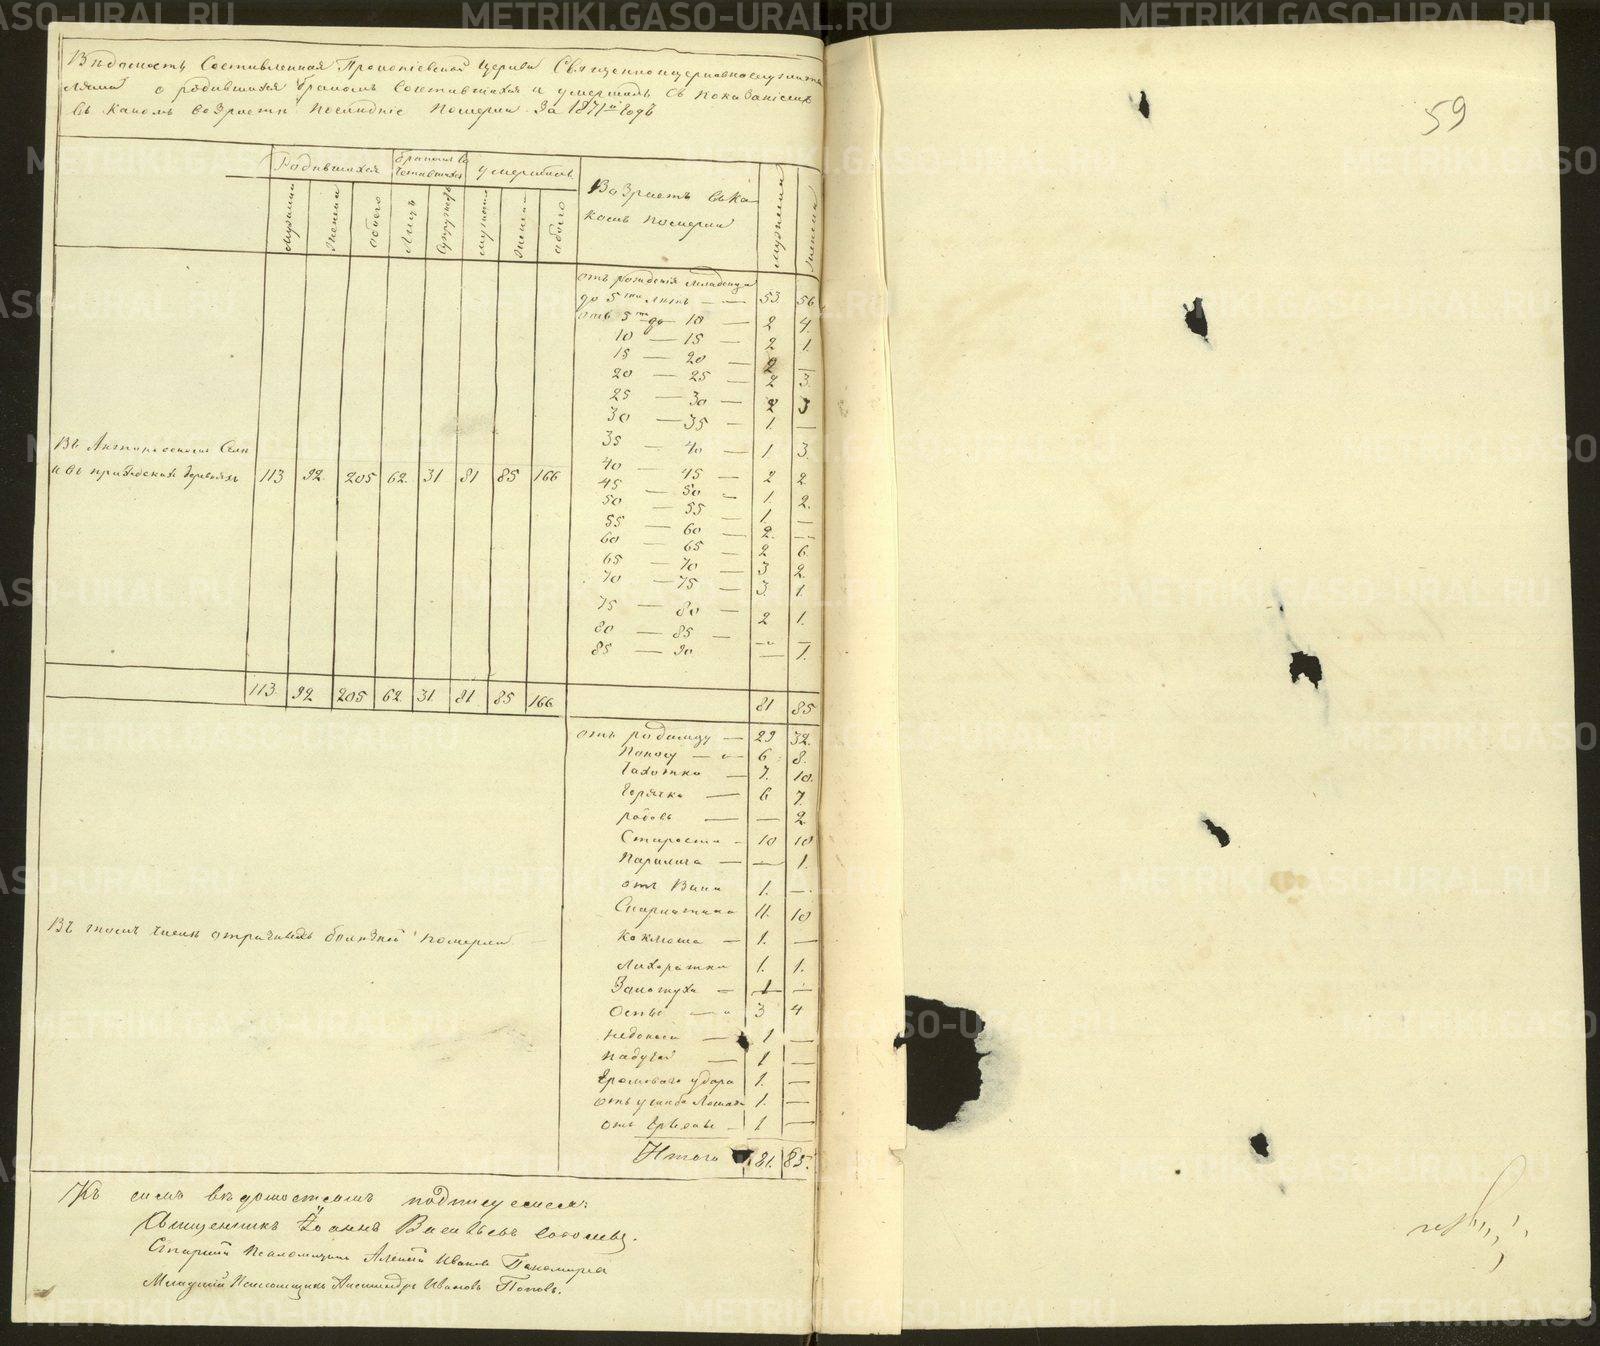 Вѣдомость Составленная Прокопіевской Церкви Священноцерковнослужите
лями о родившихся бракомъ сочетавшихся и умершихъ съ показаніемъ
въ какомъ возрастѣ послѣдніе померли за 1871й годъ
59
Родившихся бракомъ со
четавшихся умершихъ
Возрастъ въ ка
комъ померли
мужеска женска обоего лицъ супружествъ мужеска женска обоего мужеска женска
отъ рожденія младенца
до 5ти лѣтъ — — 53. 56
отъ 5ти до 10 — 2 4.
10 — 15 — 2 1.
15 — 20 — 2 —
20 — 25 — 2 3.
25 — 30 — 2 3
30 — 35 — 1. —
35 — 40 — 1 3.
40 — 45 — 2 2
45 — 50 — 1. 2.
50 — 55 — 1. —
55 — 60 — 2. —
60 — 65 — 2 6.
65 — 70 — 3 2.
70 — 75 — 3. 1.
75 — 80 — 2 1.
80 — 85 — — —
85 — 90 — 1.
Въ селѣ
и въ приходскихъ деревняхъ 113 92. 205 62. 31 81 85 166
113. 92 205 62 31. 81. 85 166
81 85
отъ родимцу — 29 32.
Поносу — 6 8.
Чахотки — 7. 10.
Горячки — 6 7.
родовъ — — 2
Старости — 10 10
Паралича — — 1.
отъ Вина 1. —
Скарлатина 11. 10
Коклюша — 1. —
Лихорадки 1. 1.
Золотуха — 1 —
Оспы — 3 4
— 1 —
Падучей — 1 —
Громоваго удара 1. —
отъ ушиба Лошади 1. —
отъ — 1 —
Итого 81. 85.
Въ томъ числѣ отъ болѣзней померли
Къ симъ вѣдомостямъ подписуемся:
Священникъ Іоаннъ Васильевъ
Старшій Псаломщикъ Алексій Ивановъ Пономаревъ
Младшій Псаломщикъ Александръ Ивановъ Поповъ.
METRIKI.GASO-URAL.RU